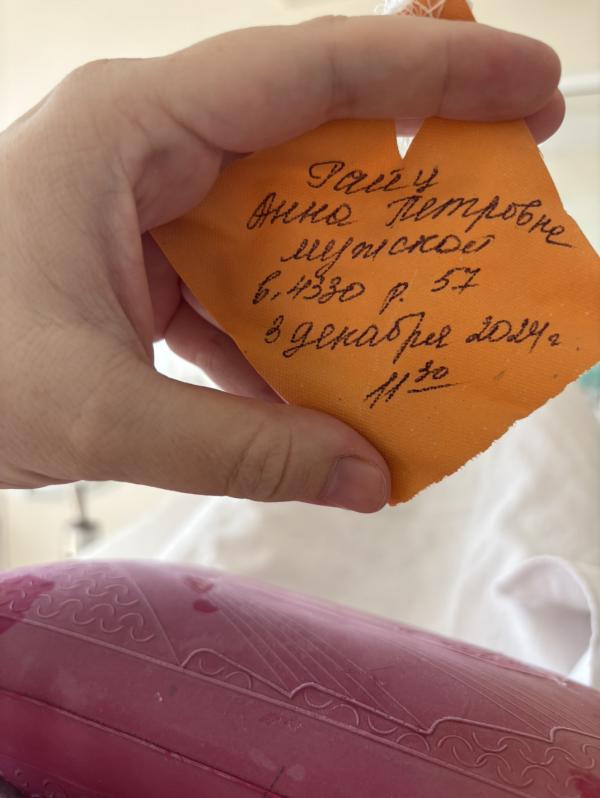 Анна Петровна
мужской
в. 4330 р. 57
3 декабря 2024 г.
11 30